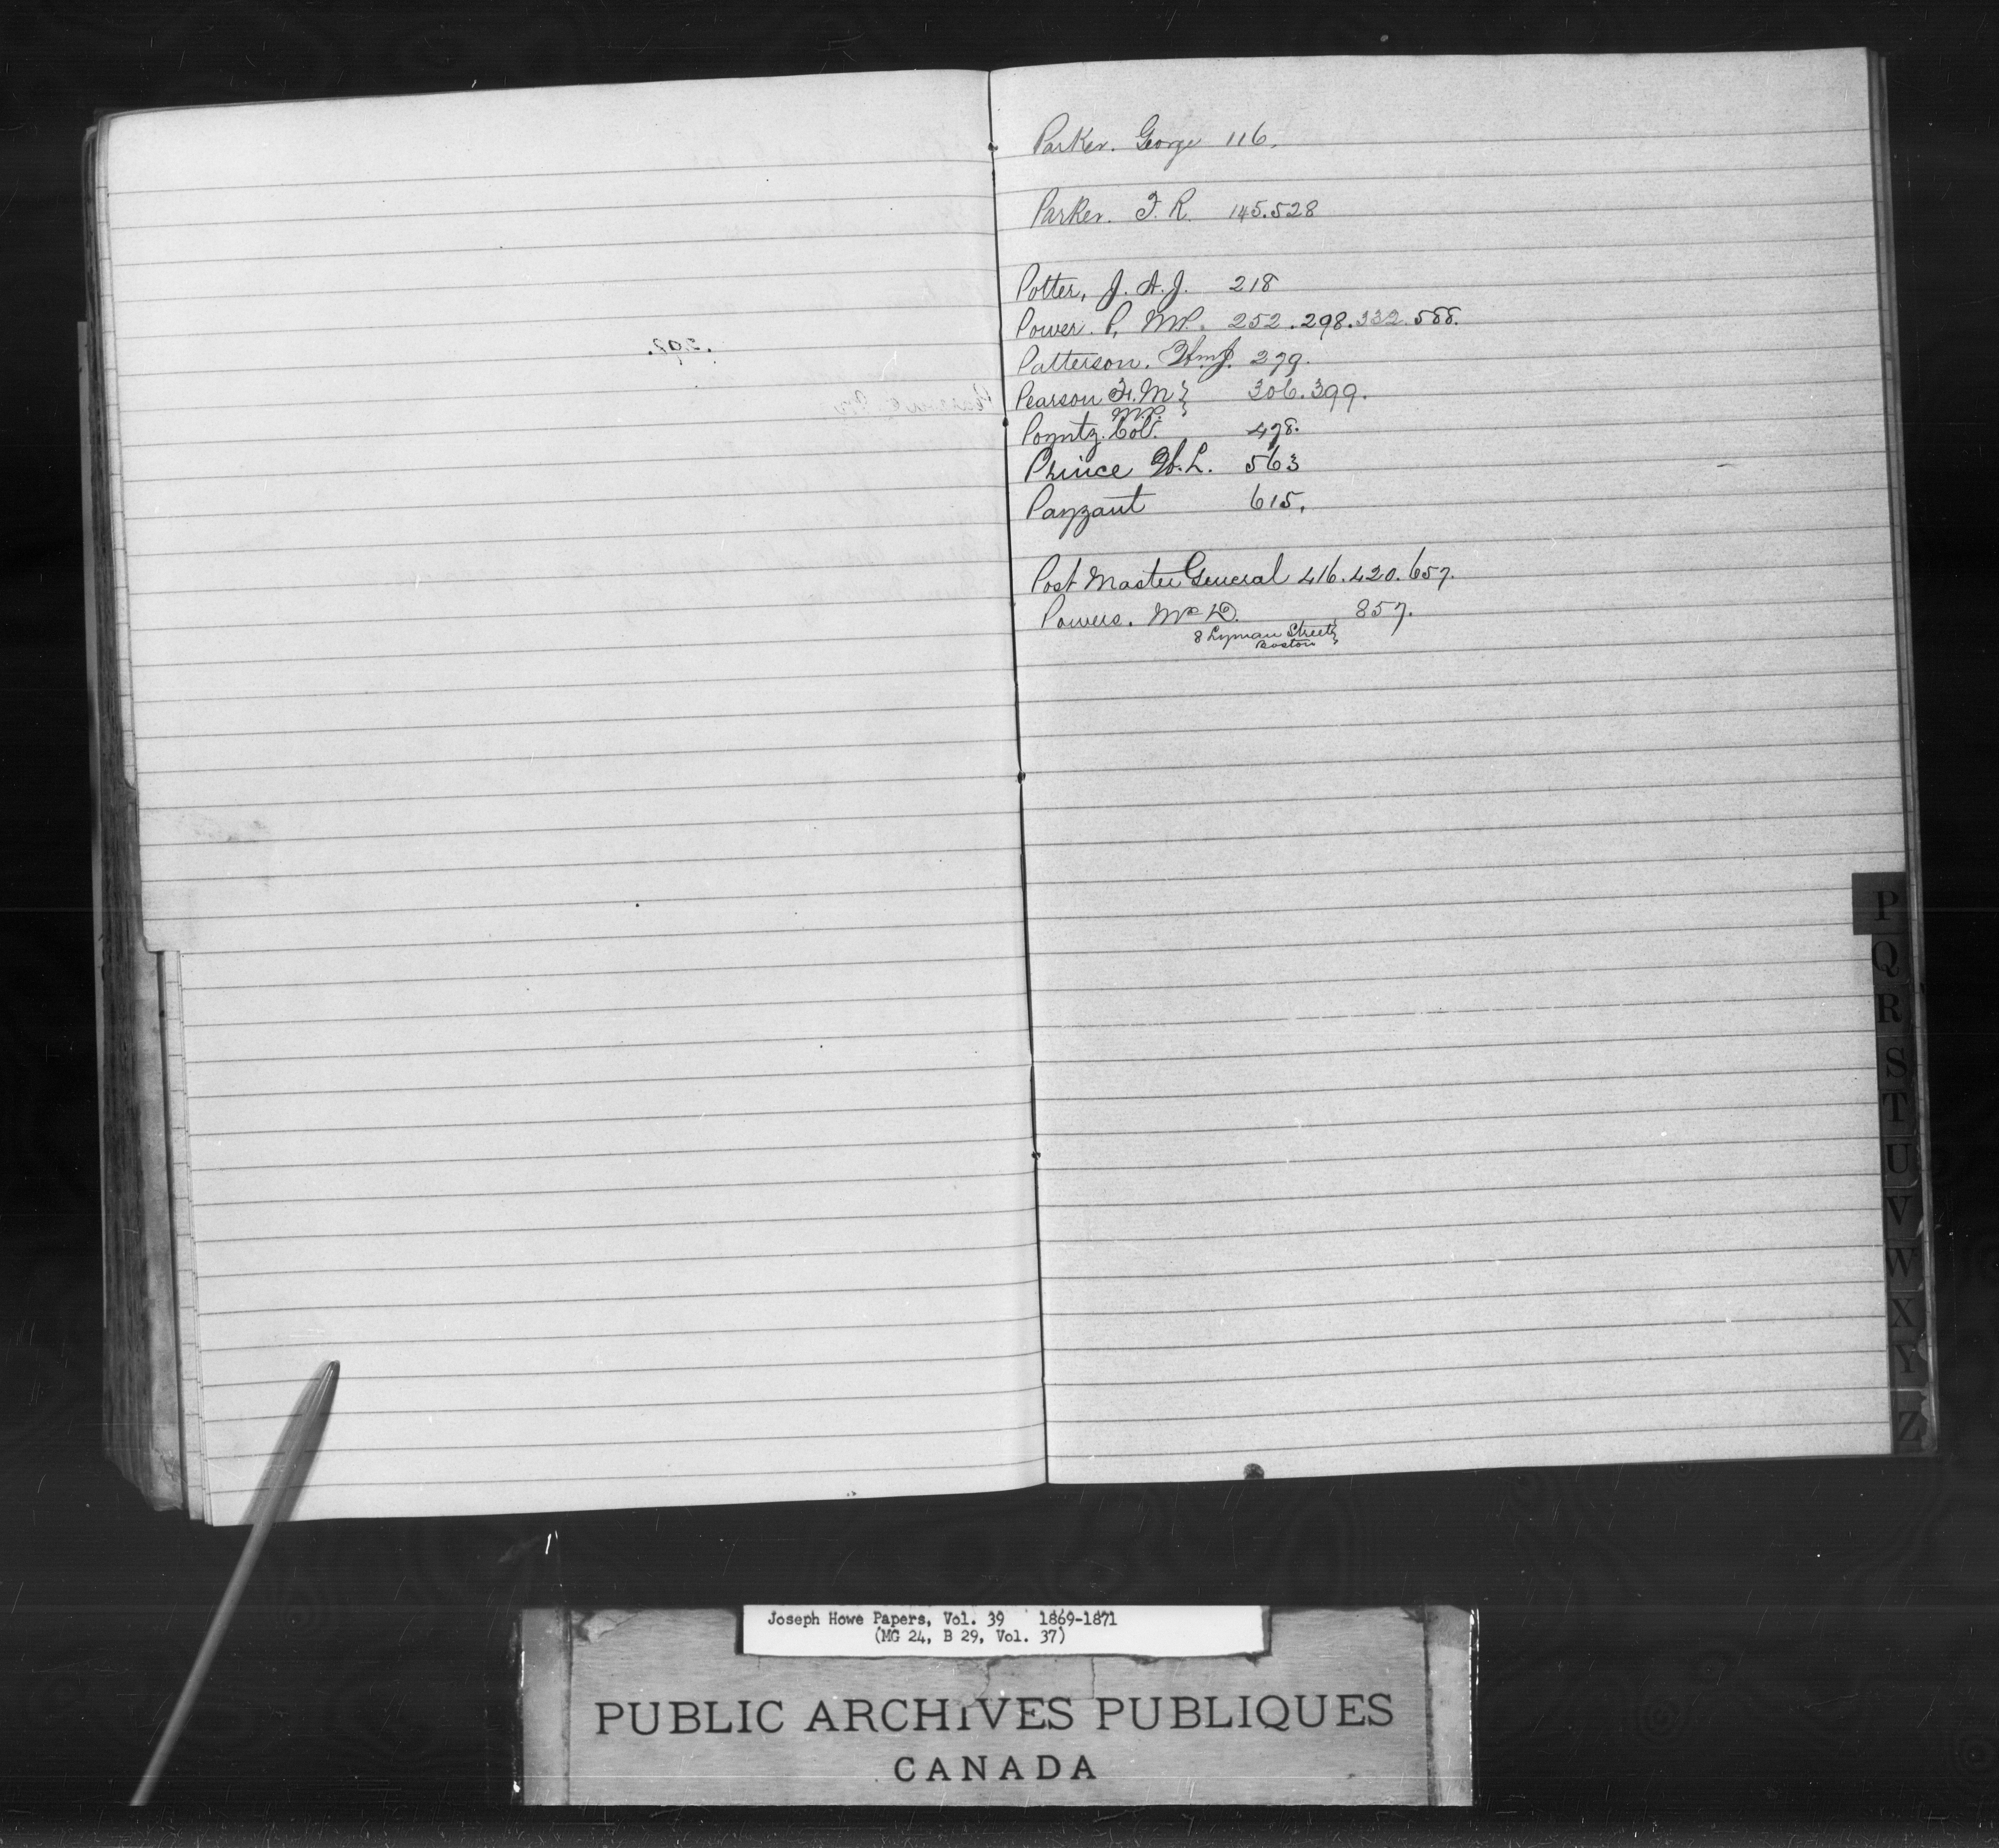 Parker. George 116.
Parker. F. R. 145.528
Potter, J. A. J. 218
Power. P. MP. 252.298.332.588.
Patterson. Wm J. 279.
Pearson F. M } 306.399.
M.P. }
Poyntz. Col. 478.
Prince W. L. 563
Payzant 615.
Post Master General 416.420.657.
Powers. Mr D. 857.
8 Lyman Street }
Boston }
P
Q
R
S
T
U
V
W
X
Y
Z
Joseph Howe Papers, Vol. 39 1869-1871
(MG 24, B 29, Vol. 37)
PUBLIC ARCHIVES PUBLIQUES
CANADA